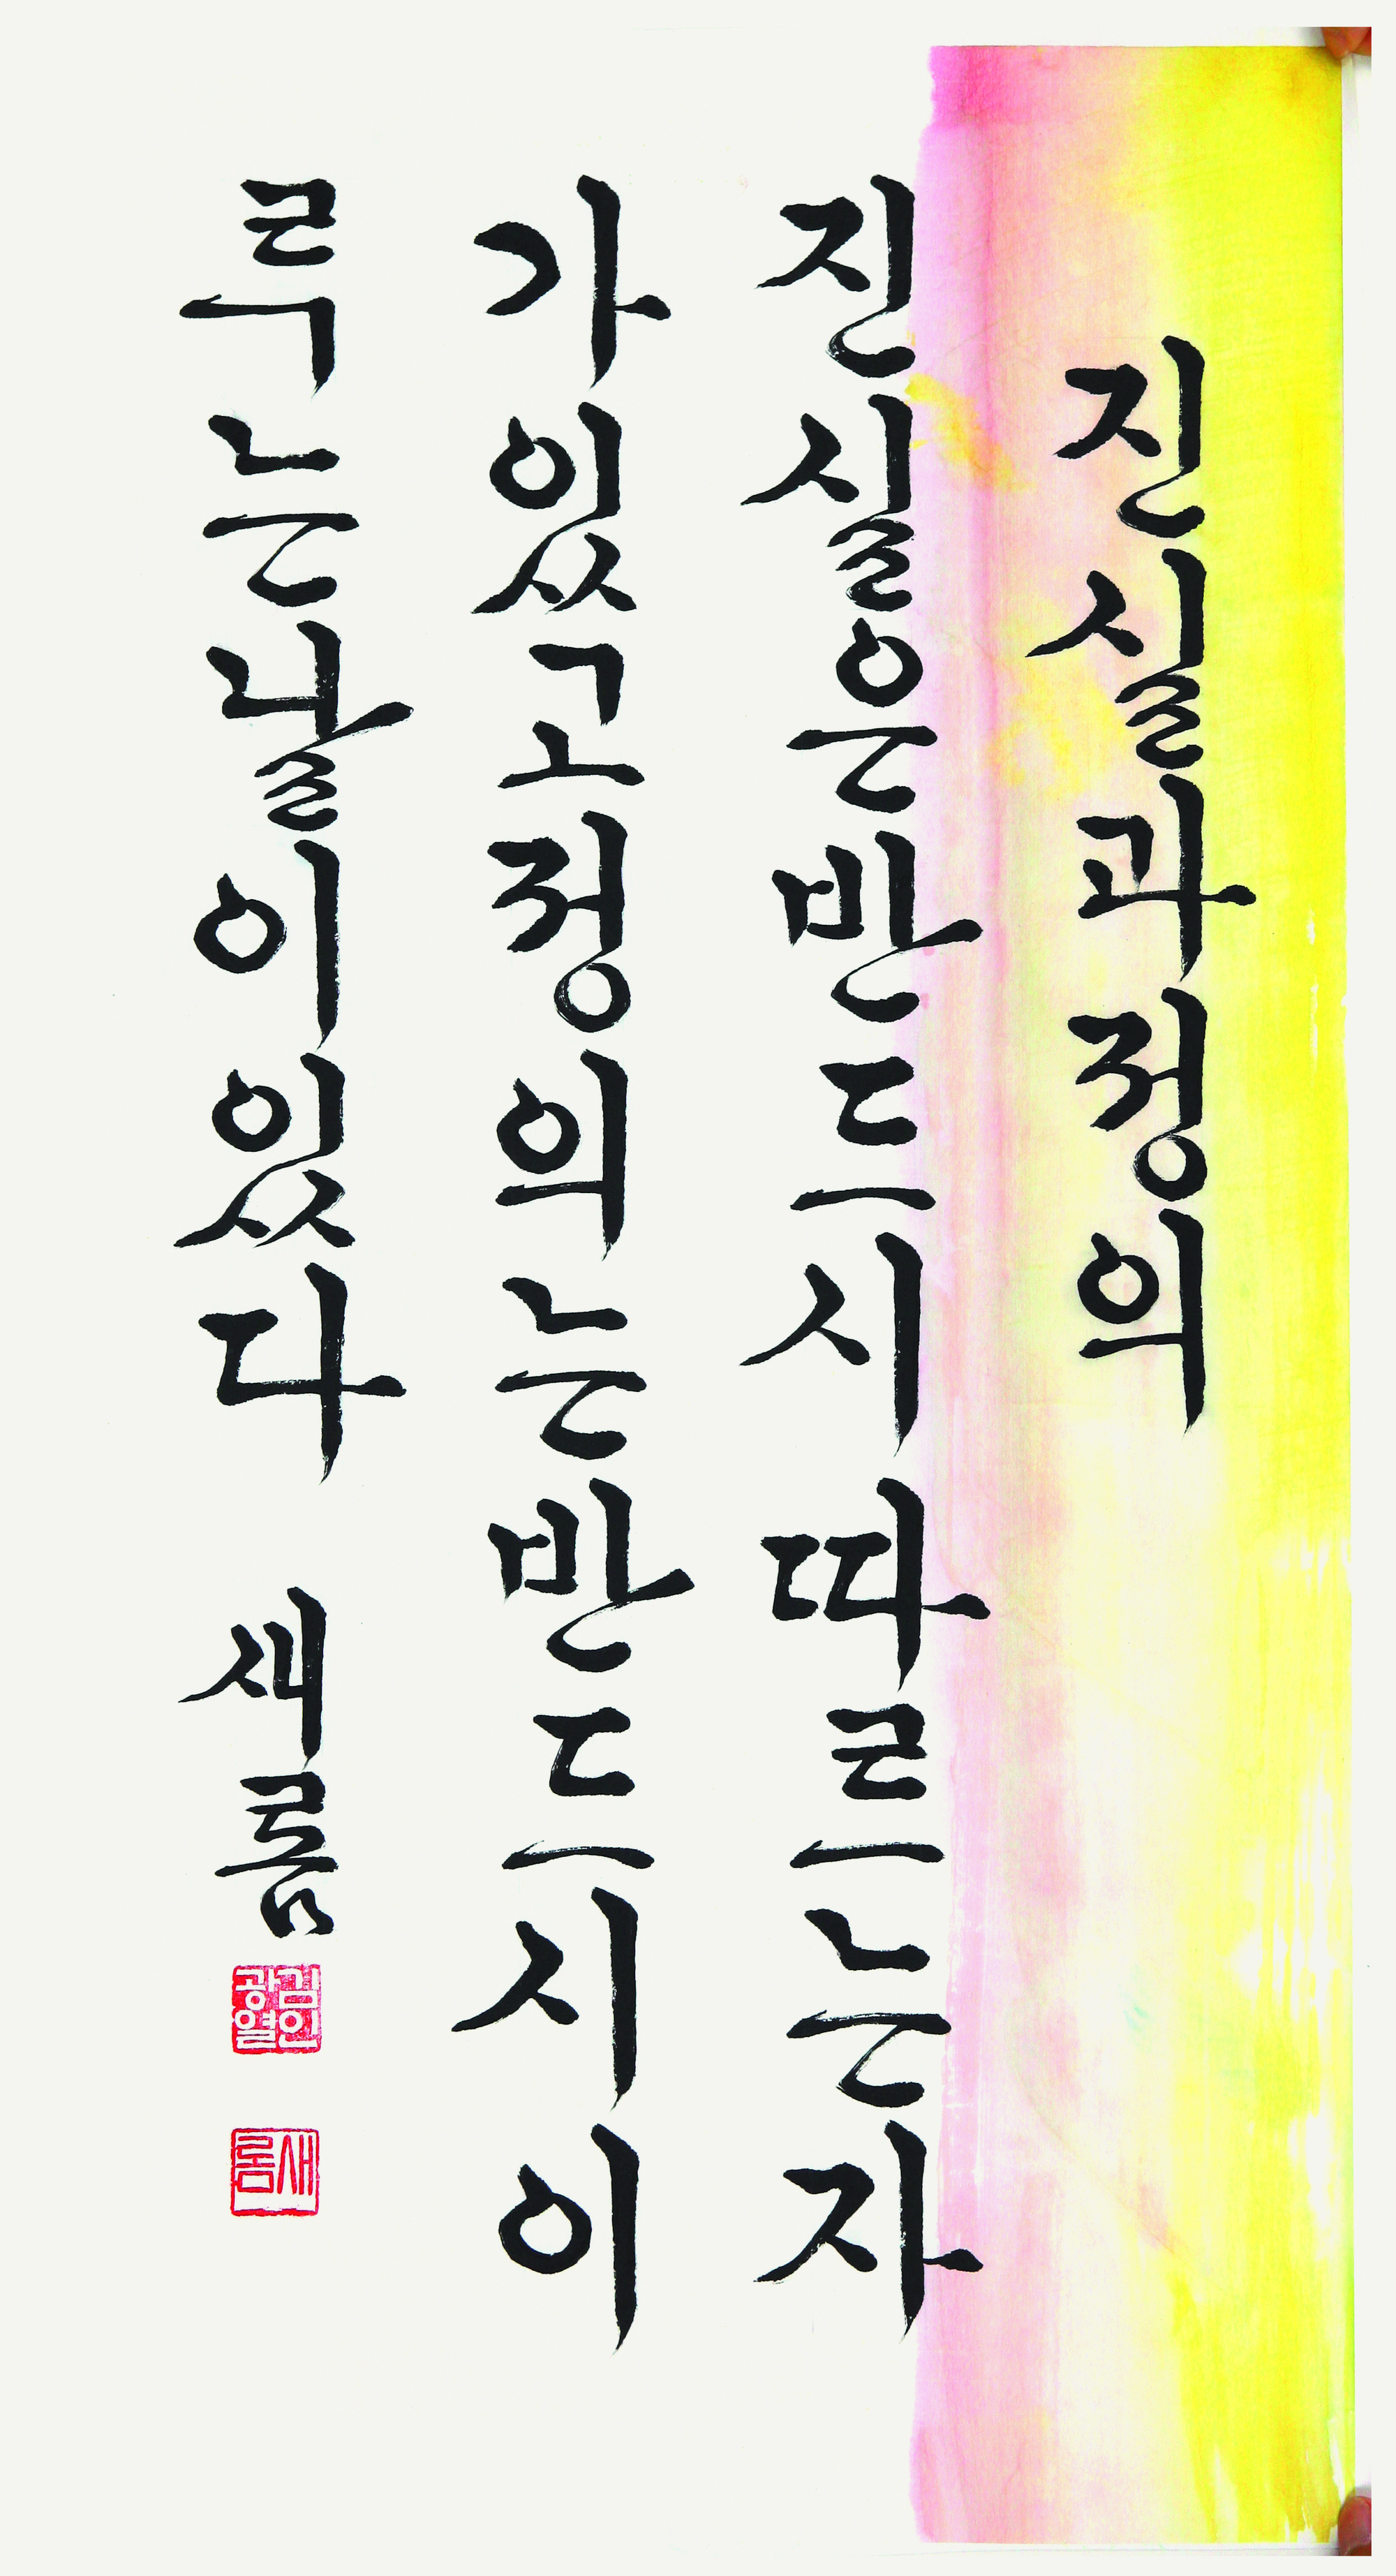 진실과정의
진실은반드시따르는자
가있고정의는반드시이
루는날이있다 새롬
김인
광열
새롬